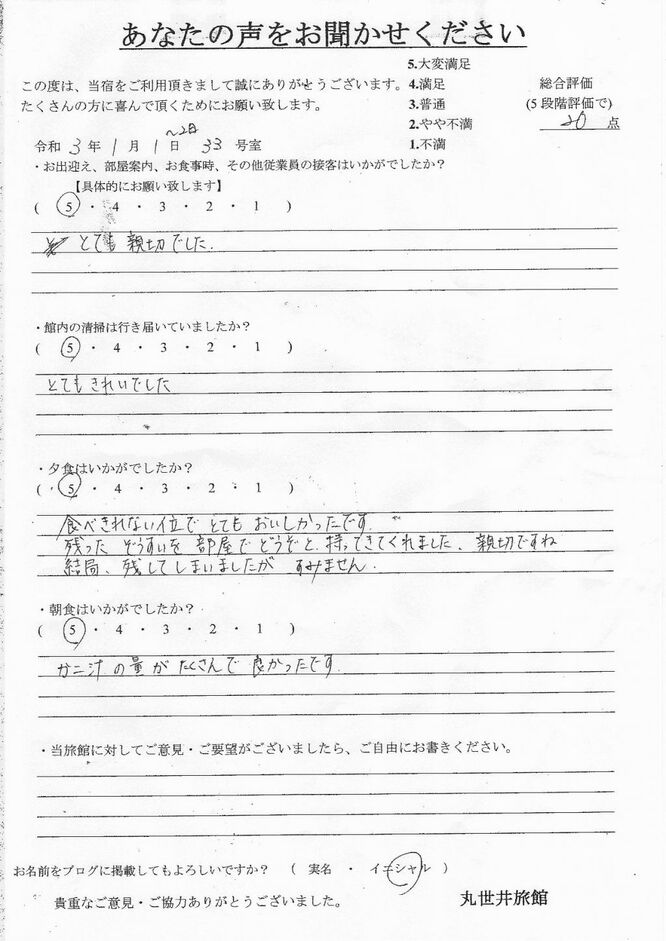 あなたの声をお聞かせください
この度は、当宿をご利用頂きまして誠にありがとうございます。
たくさんの方に喜んで頂くためにお願い致します。
5.大変満足
4.満足
3.普通
2.やや不満
1.不満
総合評価
(5段階評価で)
20 点
令和 3 年 1 月 1 日 ~2日 33 号室
・お出迎え、部屋案内、お食事時、その他従業員の接客はいかがでしたか？
【具体的にお願い致します】
( 5 ・ 4 ・ 3 ・ 2 ・ 1 )
とても 親切でした.
・館内の清掃は行き届いていましたか？
( 5 ・ 4 ・ 3 ・ 2 ・ 1 )
とても きれいでした
・夕食はいかがでしたか？
( 5 ・ 4 ・ 3 ・ 2 ・ 1 )
食べきれない位で とても おいしかったです.
残った ぞうすいを 部屋で どうぞと 持ってきてくれました、親切ですね
結局、残してしまいましたが すみません.
・朝食はいかがでしたか？
( 5 ・ 4 ・ 3 ・ 2 ・ 1 )
カニ汁 の量が たくさんで 良かったです.
・当旅館に対してご意見・ご要望がございましたら、ご自由にお書きください。
お名前をブログに掲載してもよろしいですか？ ( 実名 ・ イニシャル )
貴重なご意見・ご協力ありがとうございました。
丸世井旅館